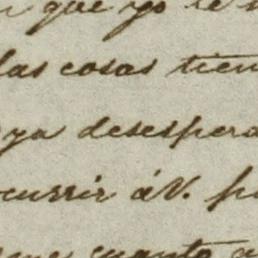 que yo te
las cosas tien
ya desespera
currir á V. p
cuanto a